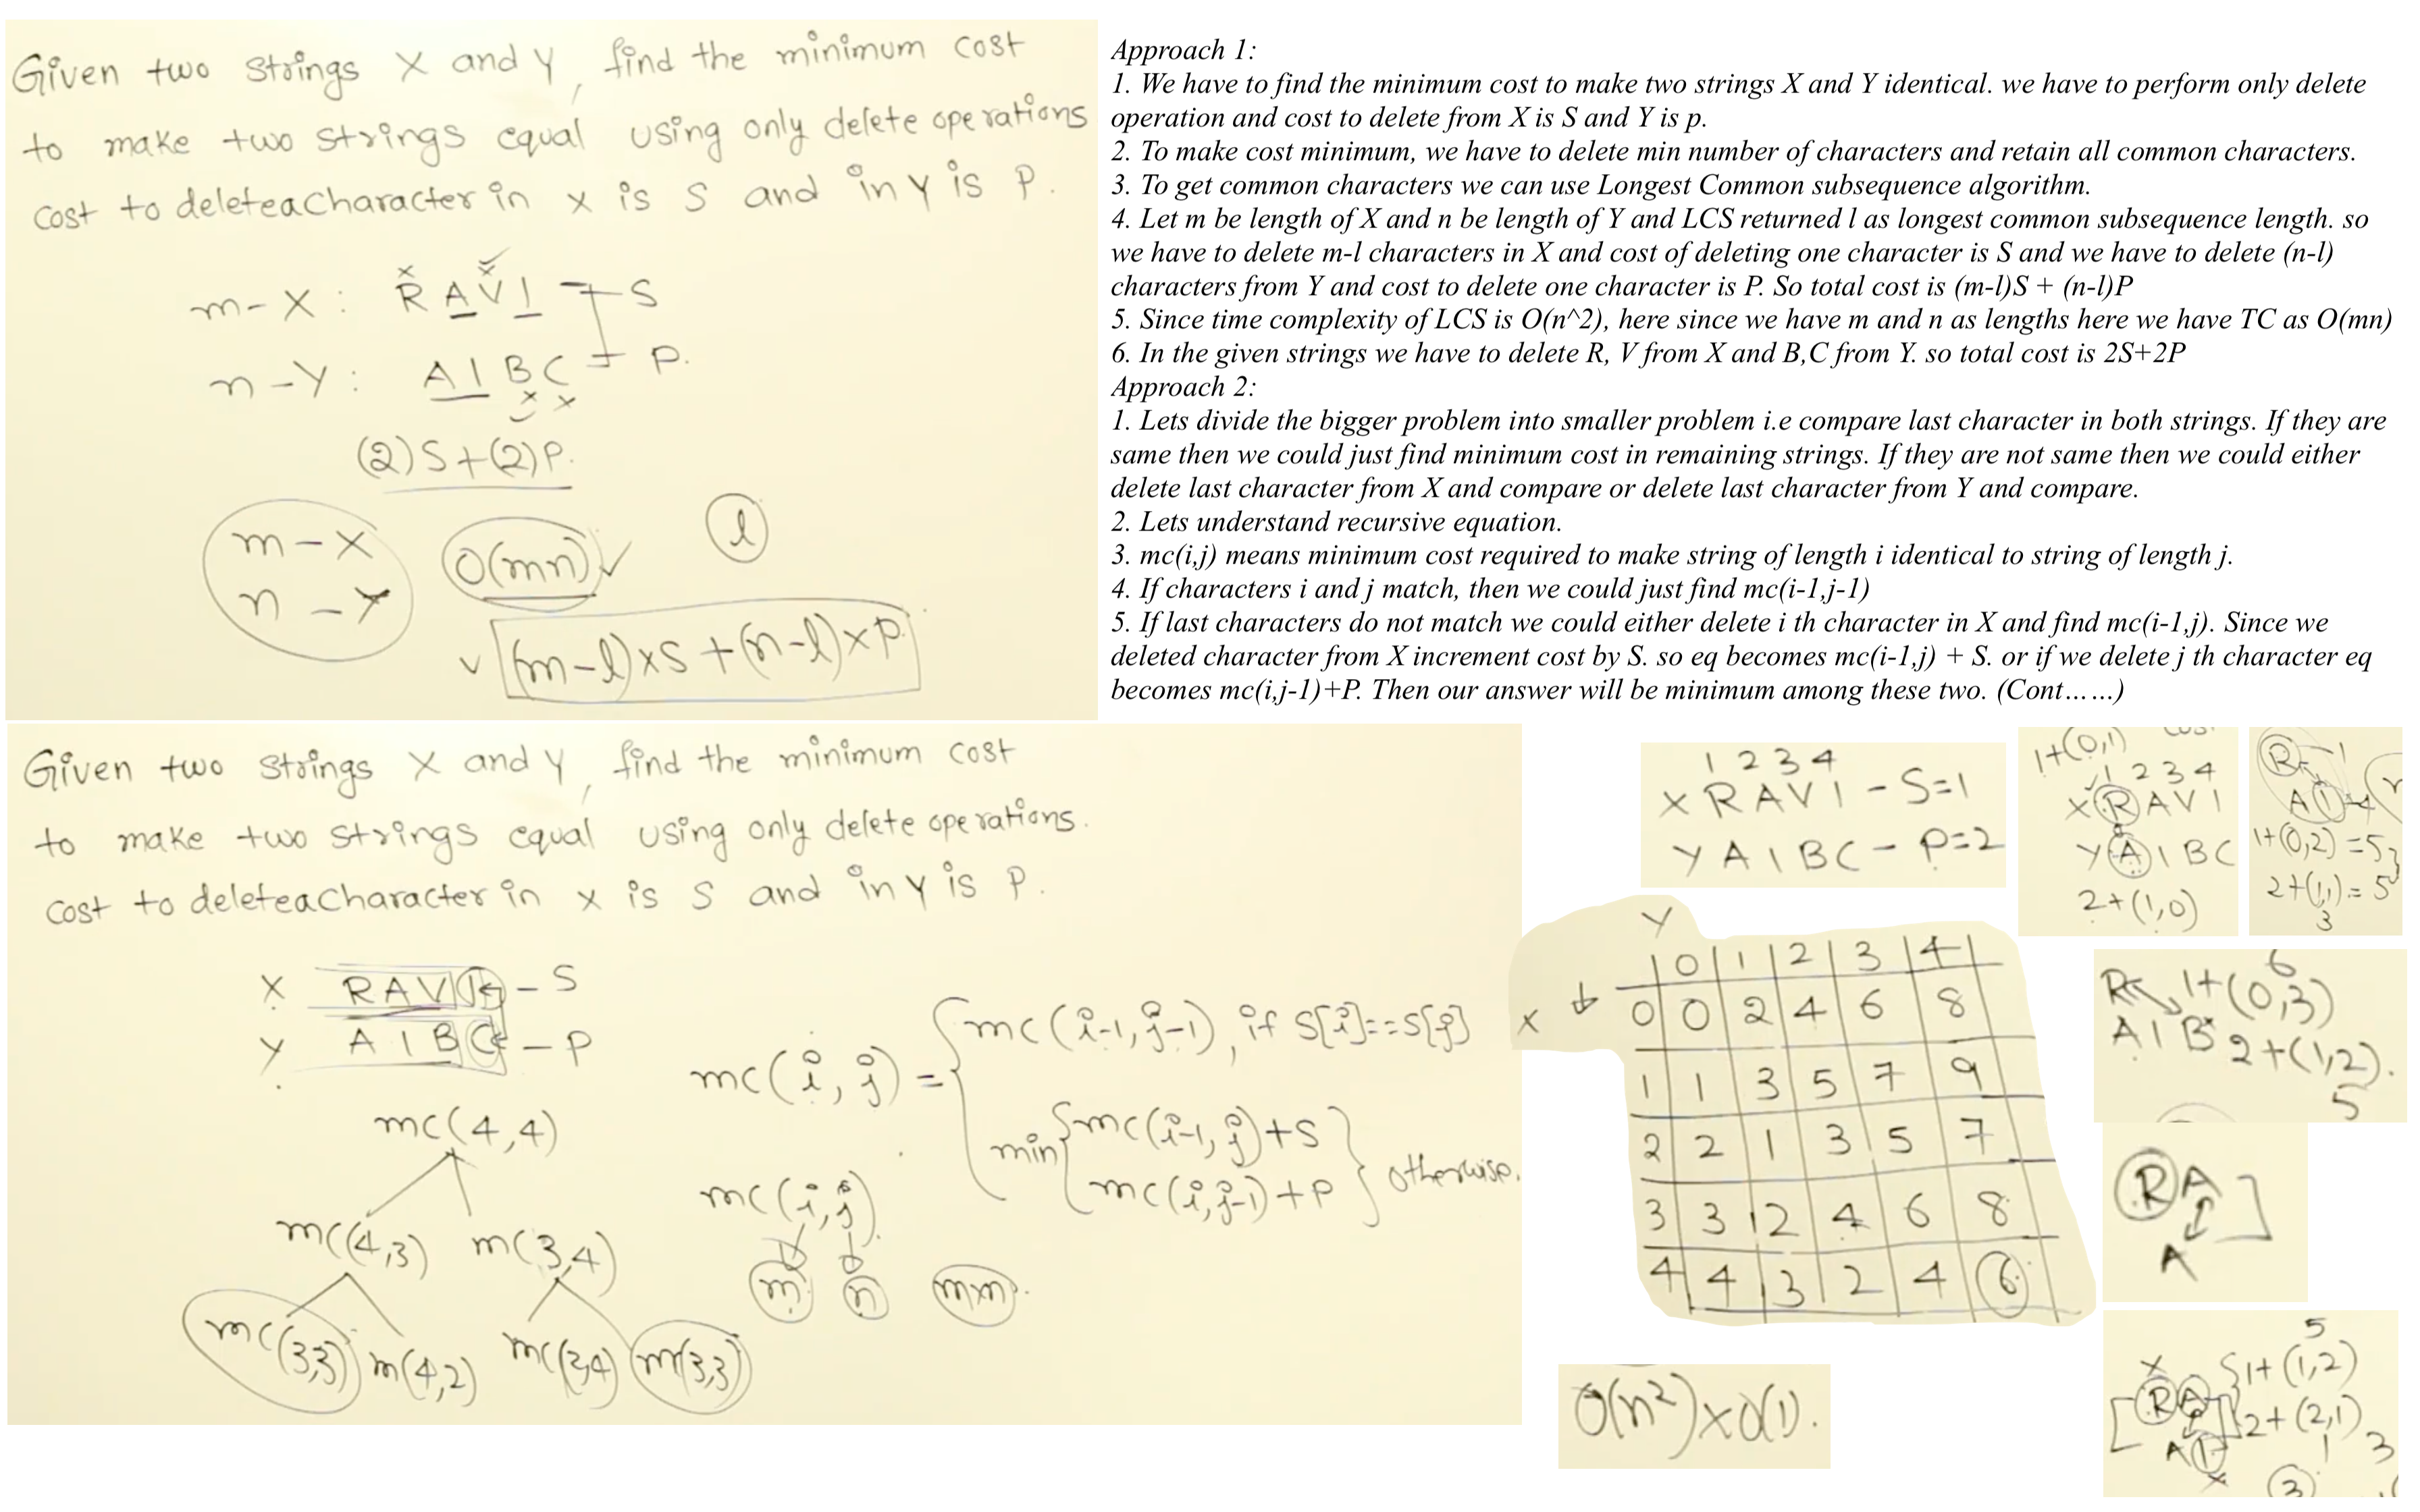 Given two strings X and Y, find the minimum cost
to make two strings equal using only delete operations
cost to deleteacharacter in x is S and in Y is P.
m - X : R A V I - S
n - Y : A I B C - P.
(2)S+(2)P.
m - X
n - Y
O(mn) ✓
l
✓ (m-l)xS + (n-l)xP.
Approach 1:
1. We have to find the minimum cost to make two strings X and Y identical. we have to perform only delete
operation and cost to delete from X is S and Y is p.
2. To make cost minimum, we have to delete min number of characters and retain all common characters.
3. To get common characters we can use Longest Common subsequence algorithm.
4. Let m be length of X and n be length of Y and LCS returned l as longest common subsequence length. so
we have to delete m-l characters in X and cost of deleting one character is S and we have to delete (n-l)
characters from Y and cost to delete one character is P. So total cost is (m-l)S + (n-l)P
5. Since time complexity of LCS is O(n^2), here since we have m and n as lengths here we have TC as O(mn)
6. In the given strings we have to delete R, V from X and B,C from Y. so total cost is 2S+2P
Approach 2:
1. Lets divide the bigger problem into smaller problem i.e compare last character in both strings. If they are
same then we could just find minimum cost in remaining strings. If they are not same then we could either
delete last character from X and compare or delete last character from Y and compare.
2. Lets understand recursive equation.
3. mc(i,j) means minimum cost required to make string of length i identical to string of length j.
4. If characters i and j match, then we could just find mc(i-1,j-1)
5. If last characters do not match we could either delete i th character in X and find mc(i-1,j). Since we
deleted character from X increment cost by S. so eq becomes mc(i-1,j) + S. or if we delete j th character eq
becomes mc(i,j-1)+P. Then our answer will be minimum among these two. (Cont......)
Given two strings X and Y, find the minimum cost
to make two strings equal using only delete operations.
cost to deleteacharacter in x is S and in Y is P.
X RAVI - S
Y AIBC - P
mc(4,4)
mc(4,3) m(3,4)
mc(3,3) m(4,2) mc(3,4) m(3,3)
mc(i,j) = { mc(i-1,j-1), if S[i]==S[j]
min { mc(i-1,j)+S
mc(i,j-1)+P } otherwise.
mc(i,j)
m n mxn.
1 2 3 4
X R A V I - S=1
Y A I B C - P=2
1+(0,1)
1 2 3 4
X R A V I
Y A I B C
2+(1,0)
R 1
A I 4
1+(0,2) = 5
2+(1,1) = 5
3
Y
0 1 2 3 4
X
0 0 2 4 6 8
1 1 3 5 7 9
2 2 1 3 5 7
3 3 2 4 6 8
4 4 3 2 4 6
6
R 1+(0,3)
A I B 2+(1,2).
5
R A
A
5
X 1+(1,2)
R A 2+(2,1)
A I 1 3
3
O(n²)xO(1).